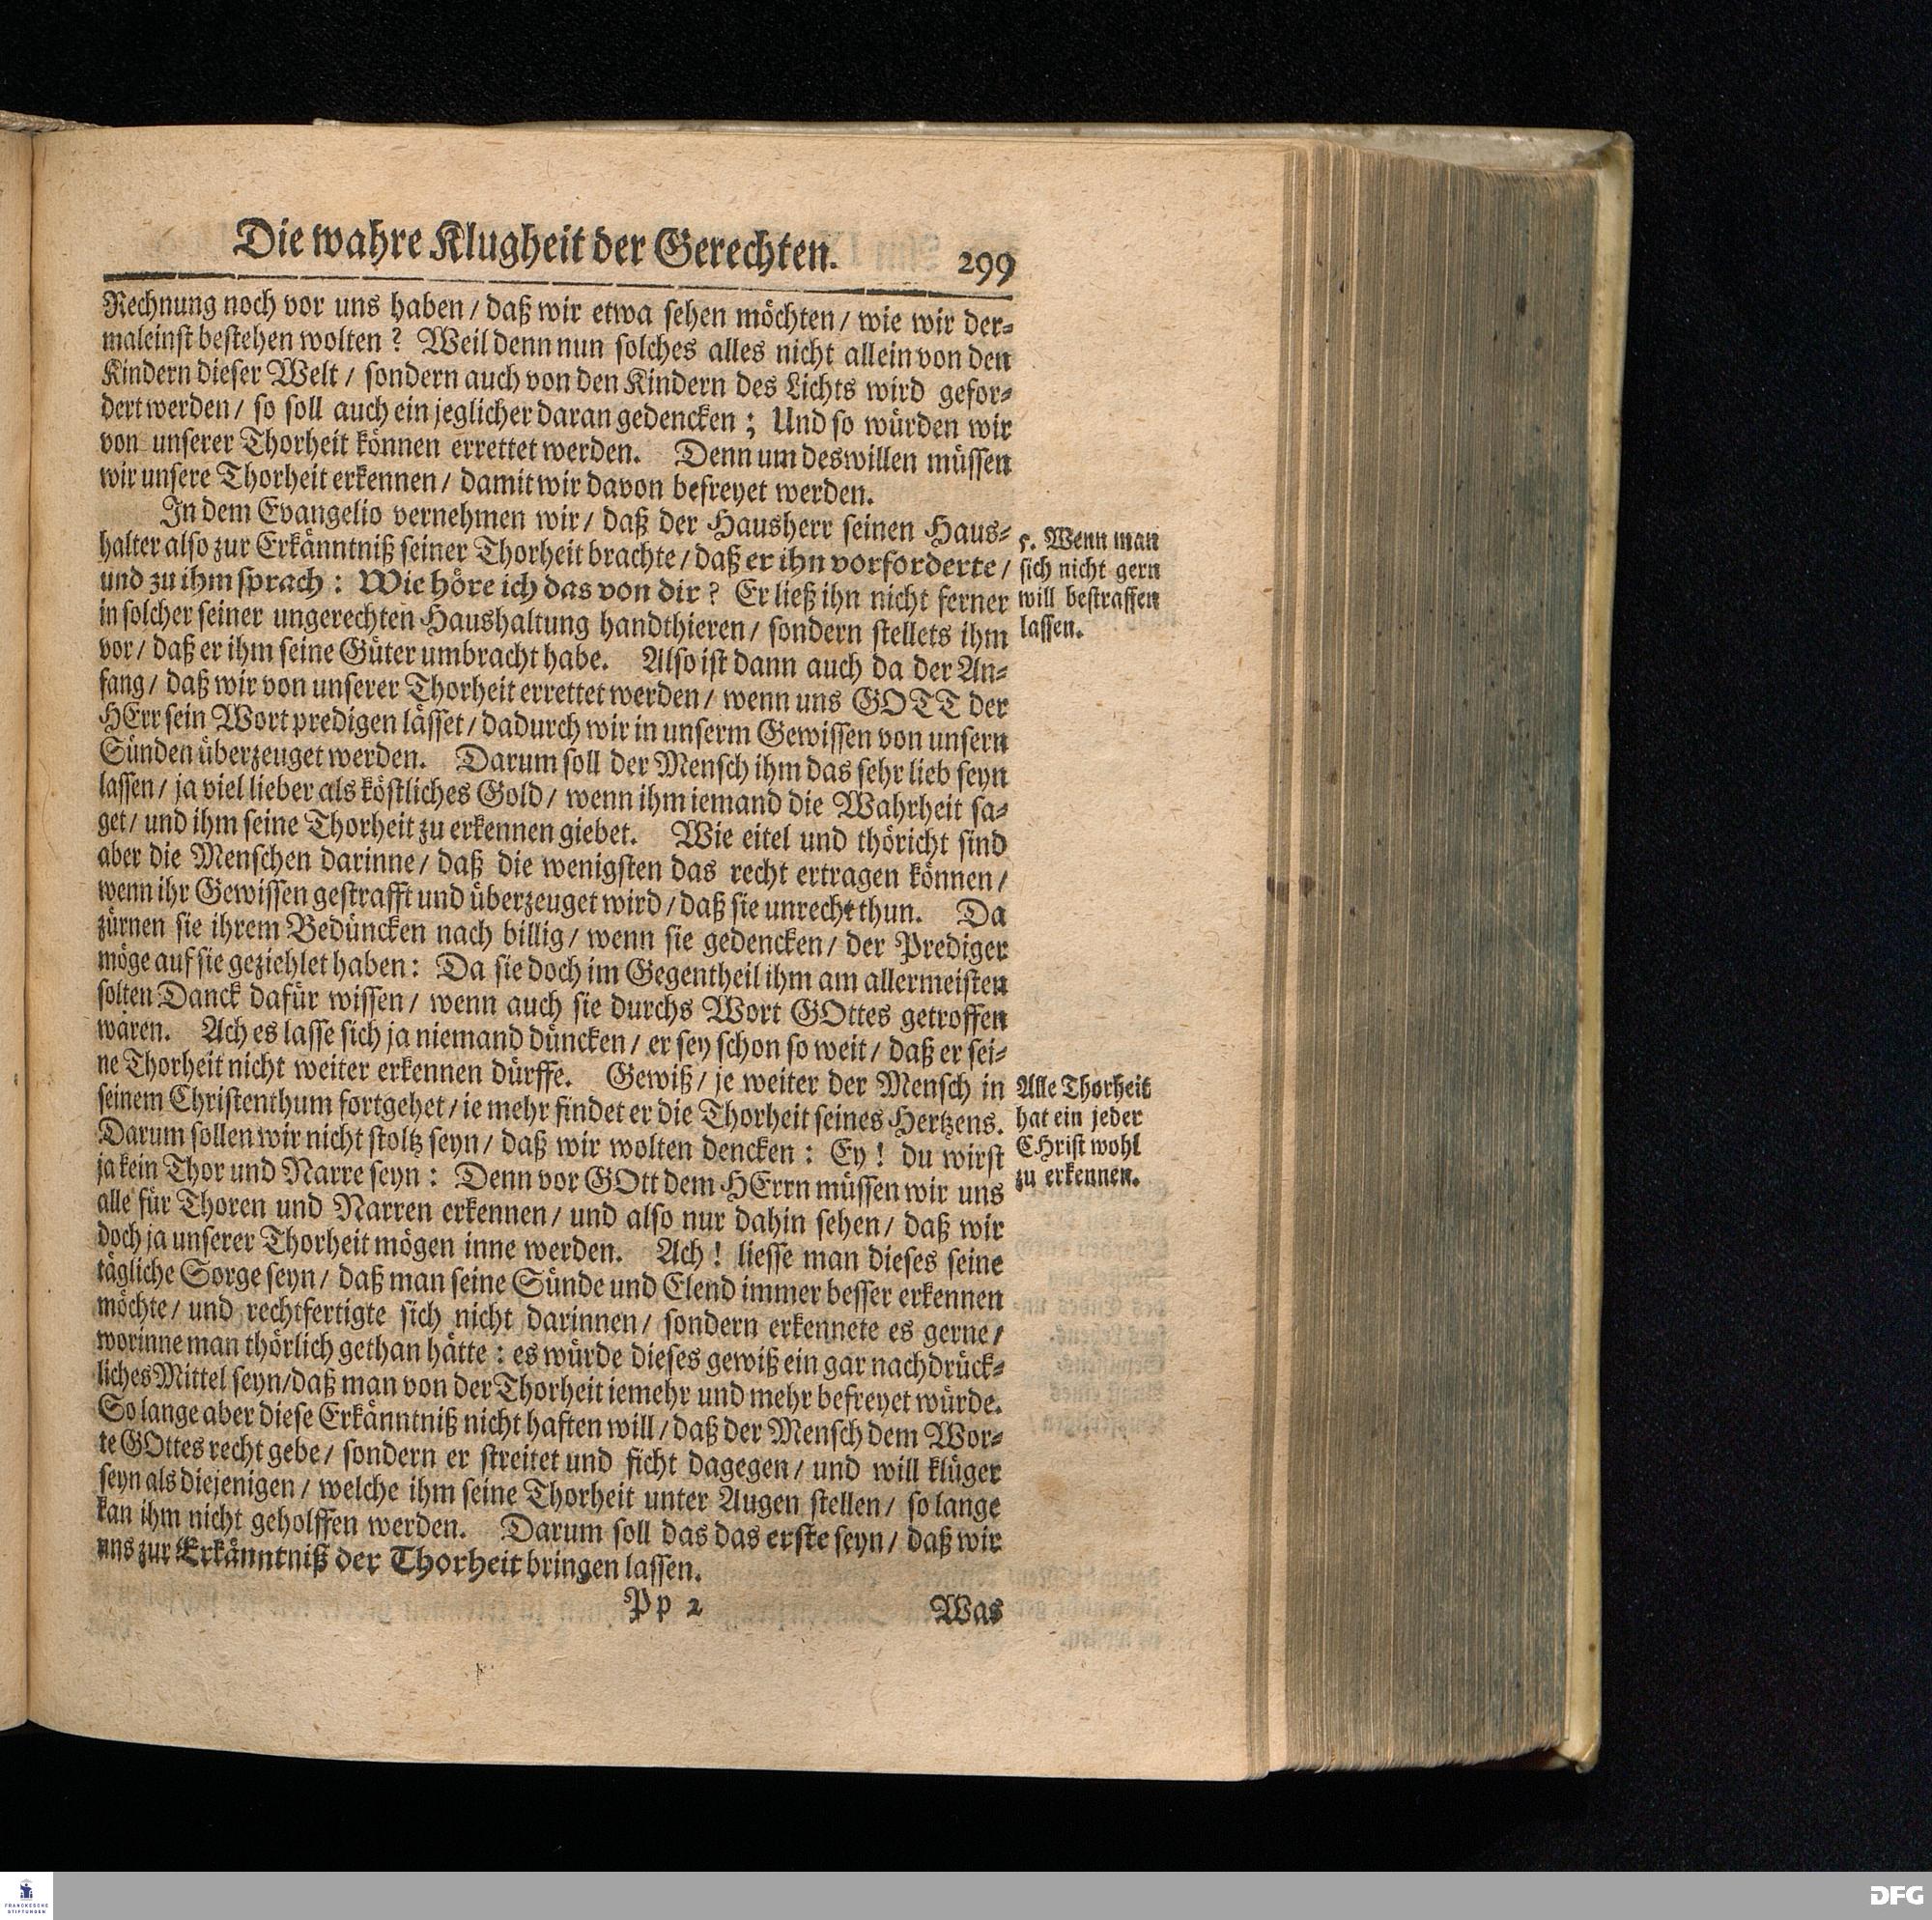 Die wahre Klugheit der Gerechten. 299
Rechnung noch vor uns haben / daß wir etwa sehen möchten / wie wir der-
maleinst bestehen wolten? Weil denn nun solches alles nicht allein von den
Kindern dieser Welt / sondern auch von den Kindern des Lichts wird gefor-
dert werden / so soll auch ein jeglicher daran gedencken; Und so würden wir
von unserer Thorheit können errettet werden. Denn um deswillen müssen
wir unsere Thorheit erkennen / damit wir davon befreyet werden.
In dem Evangelio vernehmen wir / daß der Hausherr seinen Haus-
halter also zur Erkänntniß seiner Thorheit brachte / daß er ihn vorforderte /
und zu ihm sprach: Wie höre ich das von dir? Er ließ ihn nicht ferner
in solcher seiner ungerechten Haushaltung handthieren / sondern stellets ihm
vor / daß er ihm seine Güter umbracht habe. Also ist dann auch da der An-
fang / daß wir von unserer Thorheit errettet werden / wenn uns GOTT der
HErr sein Wort predigen lässet / dadurch wir in unserm Gewissen von unsern
Sünden überzeuget werden. Darum soll der Mensch ihm das sehr lieb seyn
lassen / ja viel lieber als köstliches Gold / wenn ihm iemand die Wahrheit sa-
get / und ihm seine Thorheit zu erkennen giebet. Wie eitel und thöricht sind
aber die Menschen darinne / daß die wenigsten das recht ertragen können /
wenn ihr Gewissen gestrafft und überzeuget wird / daß sie unrecht thun. Da
zürnen sie ihrem Bedüncken nach billig / wenn sie gedencken / der Prediger
möge auf sie geziehlet haben: Da sie doch im Gegentheil ihm am allermeisten
solten Danck dafür wissen / wenn auch sie durchs Wort GOttes getroffen
wären. Ach es lasse sich ja niemand düncken / er sey schon so weit / daß er sei-
ne Thorheit nicht weiter erkennen dürffe. Gewiß / je weiter der Mensch in
seinem Christenthum fortgehet / ie mehr findet er die Thorheit seines Hertzens.
Darum sollen wir nicht stoltz seyn / daß wir wolten dencken: Ey! du wirst
ja kein Thor und Narre seyn: Denn vor GOtt dem HErrn müssen wir uns
alle für Thoren und Narren erkennen / und also nur dahin sehen / daß wir
doch ja unserer Thorheit mögen inne werden. Ach! liesse man dieses seine
tägliche Sorge seyn / daß man seine Sünde und Elend immer besser erkennen
möchte / und rechtfertigte sich nicht darinnen / sondern erkennete es gerne /
worinne man thörlich gethan hätte: es würde dieses gewiß ein gar nachdrück-
liches Mittel seyn / daß man von der Thorheit iemehr und mehr befreyet würde.
So lange aber diese Erkänntniß nicht haften will / daß der Mensch dem Wor-
te GOttes recht gebe / sondern er streitet und ficht dagegen / und will klüger
seyn als diejenigen / welche ihm seine Thorheit unter Augen stellen / so lange
kan ihm nicht geholffen werden. Darum soll das das erste seyn / daß wir
uns zur Erkänntniß der Thorheit bringen lassen.
Pp 2 Was
5. Wenn man
sich nicht gern
will bestraffen
lassen.
Alle Thorheit
hat ein jeder
CHrist wohl
zu erkennen.
FRANCKESCHE
STIFTUNGEN
DFG